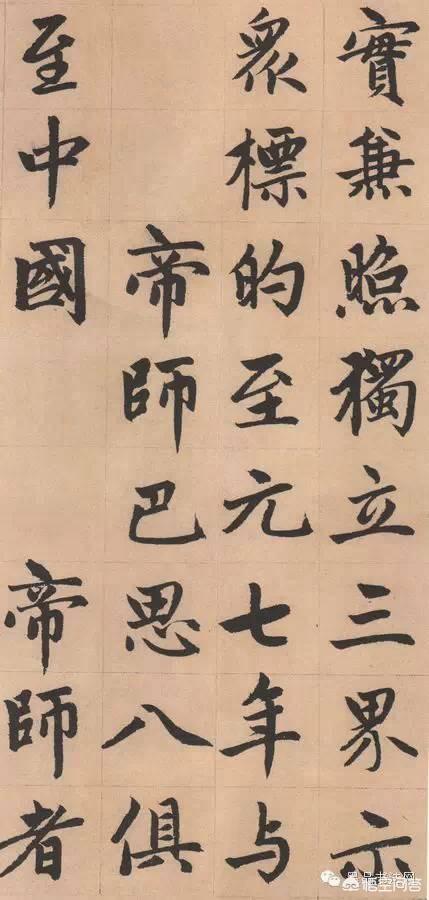 實兼照獨立三界示
眾標的至元七年与
帝師巴思八俱
至中國 帝師者
悟空问答